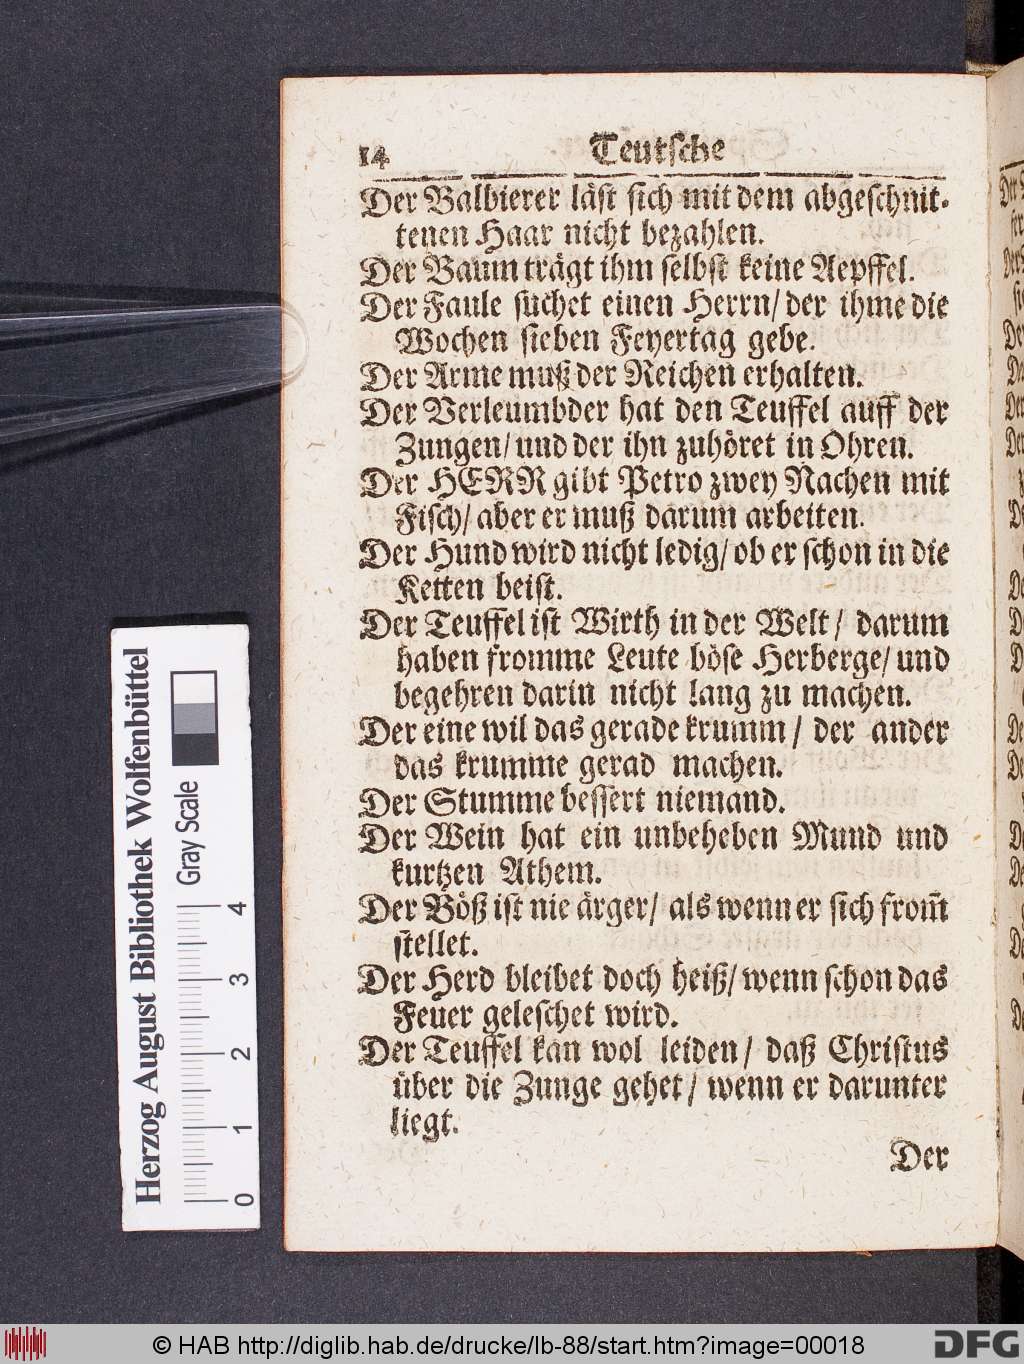 14 Teutsche
Der Balbierer läst sich mit dem abgeschnit-
tenen Haar nicht bezahlen.
Der Baum trägt ihm selbst keine Aepffel.
Der Faule suchet einen Herrn/ der ihme die
Wochen sieben Feyertag gebe.
Der Arme muß der Reichen erhalten.
Der Verleumbder hat den Teuffel auff der
Zungen/ und der ihn zuhöret in Ohren.
Der HERR gibt Petro zwey Nachen mit
Fisch/ aber er muß darum arbeiten.
Der Hund wird nicht ledig/ ob er schon in die
Ketten beist.
Der Teuffel ist Wirth in der Welt/ darum
haben fromme Leute böse Herberge/ und
begehren darin nicht lang zu machen.
Der eine wil das gerade krumm/ der ander
das krumme gerad machen.
Der Stumme bessert niemand.
Der Wein hat ein unbeheben Mund und
kurtzen Athem.
Der Böß ist nie ärger/ als wenn er sich from̃
stellet.
Der Herd bleibet doch heiß/ wenn schon das
Feuer geleschet wird.
Der Teuffel kan wol leiden/ daß Christus
über die Zunge gehet/ wenn er darunter
liegt.
Der
Herzog August Bibliothek Wolfenbüttel
Gray Scale
0 1 2 3 4
© HAB http://diglib.hab.de/drucke/lb-88/start.htm?image=00018
DFG